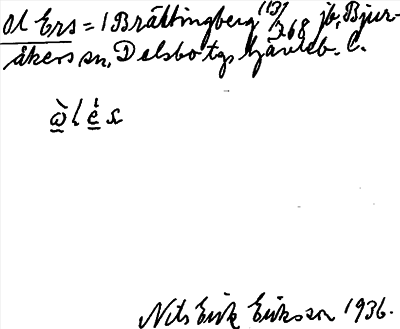 Ol Ers = 1 Brättingberg 13/368 jb, Bjur-
åkers sn, Delsbo tg, Gävleb. l.
Nils Erik Eriksson 1936.